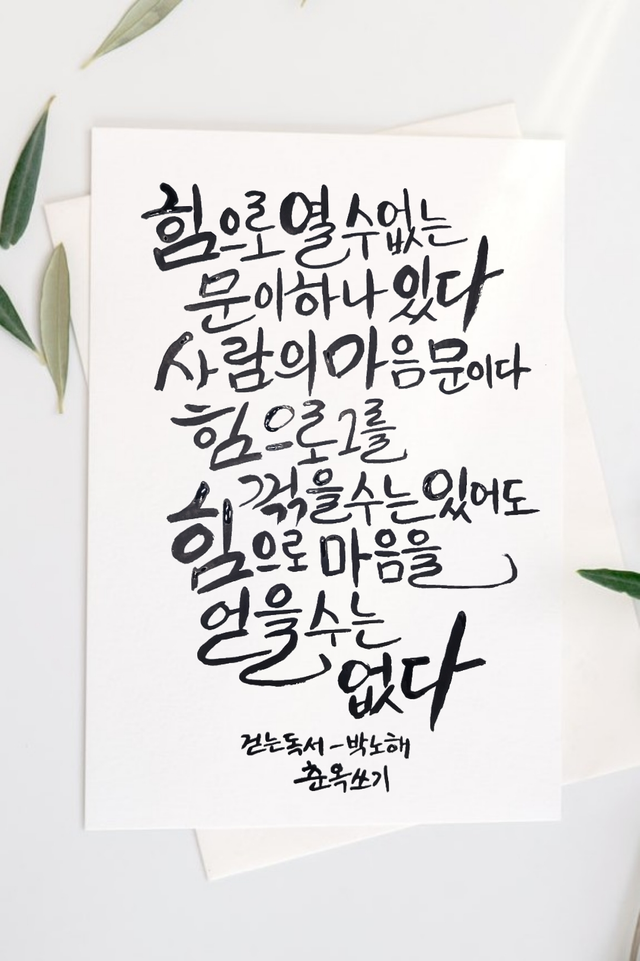 힘으로 열 수 없는
문이 하나 있다
사람의 마음 문이다
힘으로 그를
꺾을 수는 있어도
힘으로 마음을
얻을 수는
없다
걷는 독서 - 박노해
춘옥 쓰기